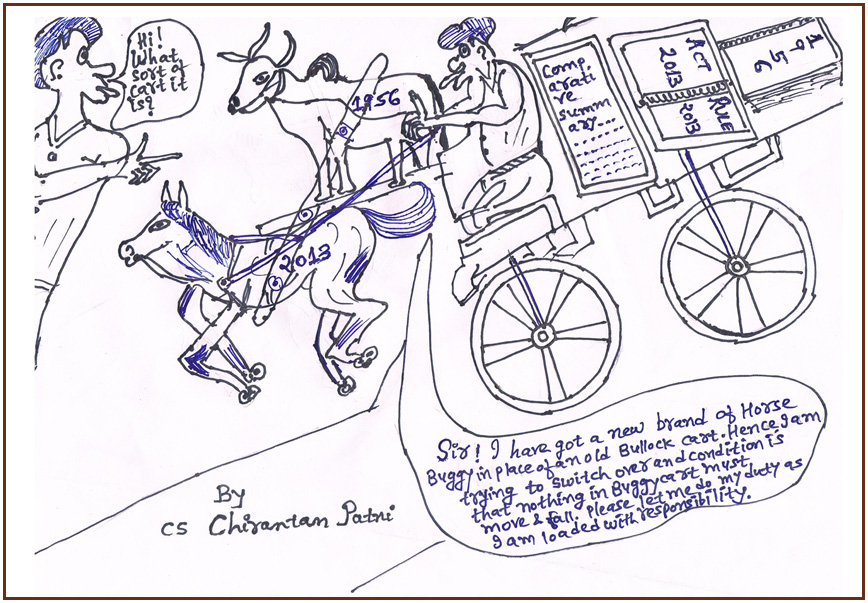 Hi!
What
sort of
cart it
is?
1956
2013
Comp.
arati
ve
summ
ary...
ACT
2013
RULE
2013
1956
Sir! I have got a new brand of Horse
Buggy in place of an old Bullock cart. Hence I am
trying to switch over and condition is
that nothing in Buggy cart must
move & fall. please let me do my duty as
I am loaded with responsibility.
By
CS Chirantan Patni